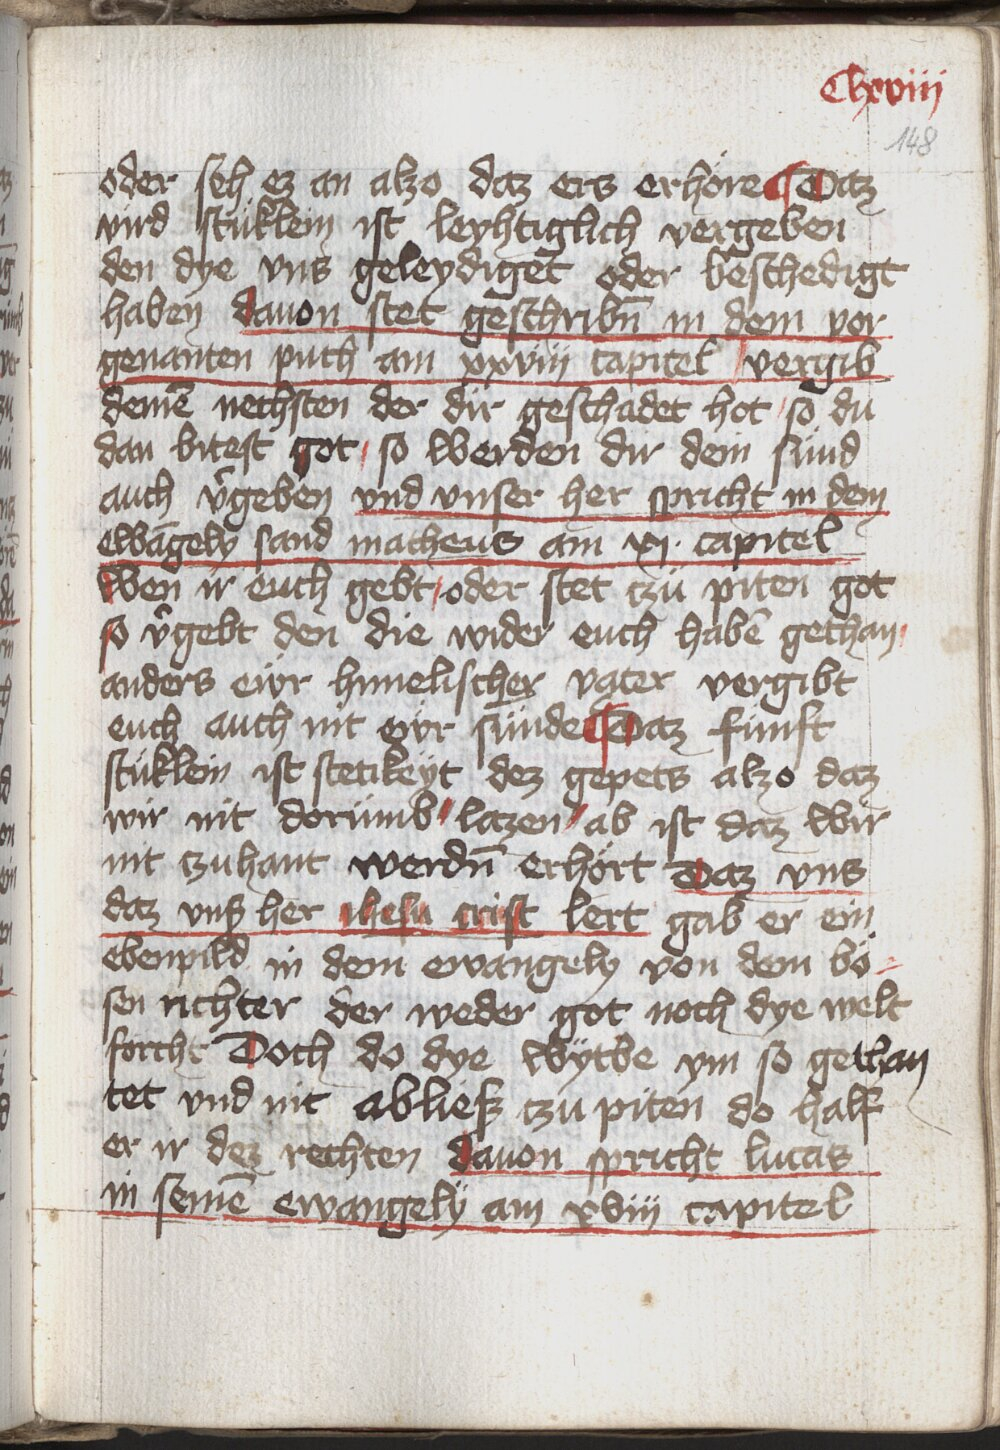 Clxviii
148
oder seh ez an alzo daz ers erhöre Daz
vird stüklein ist leyhtiglich vergeben
den dye vns geleydiget oder beschedigt
haben dauon stet geschribn̄ in dem vor
genanten puch am xxviii capitel vergib
deinē nechsten der dir geschadet hot so du
dan bitest got so werden dir dein sünd
auch v̂geben vnd vnser her spricht in dem
ewāgely sand matheus am xi capitel
Wen ir euch gebt oder stet czü piten got
so v̂gebt den die wider euch habē gethan
anders eẅr himelischer vater vergibt
euch auch nit eẅr sünde Daz fünft
stüklein ist stetikeyt dez gepets alzo daz
wir nit dorümb lazen ab ist daz wir
nit czuhant werdn̄ erhört Daz vns
daz vnß her ihesu crist lert gab er ein
ebenpild in dem ewangely von dem bö
sen richter der weder got noch dye welt
forcht Doch do dye wytbe ym so gethan
tet vnd nit abließ czu piten do half
er ir dez rechten dauon spricht lucas
in seinē ewangely am xviii capitel